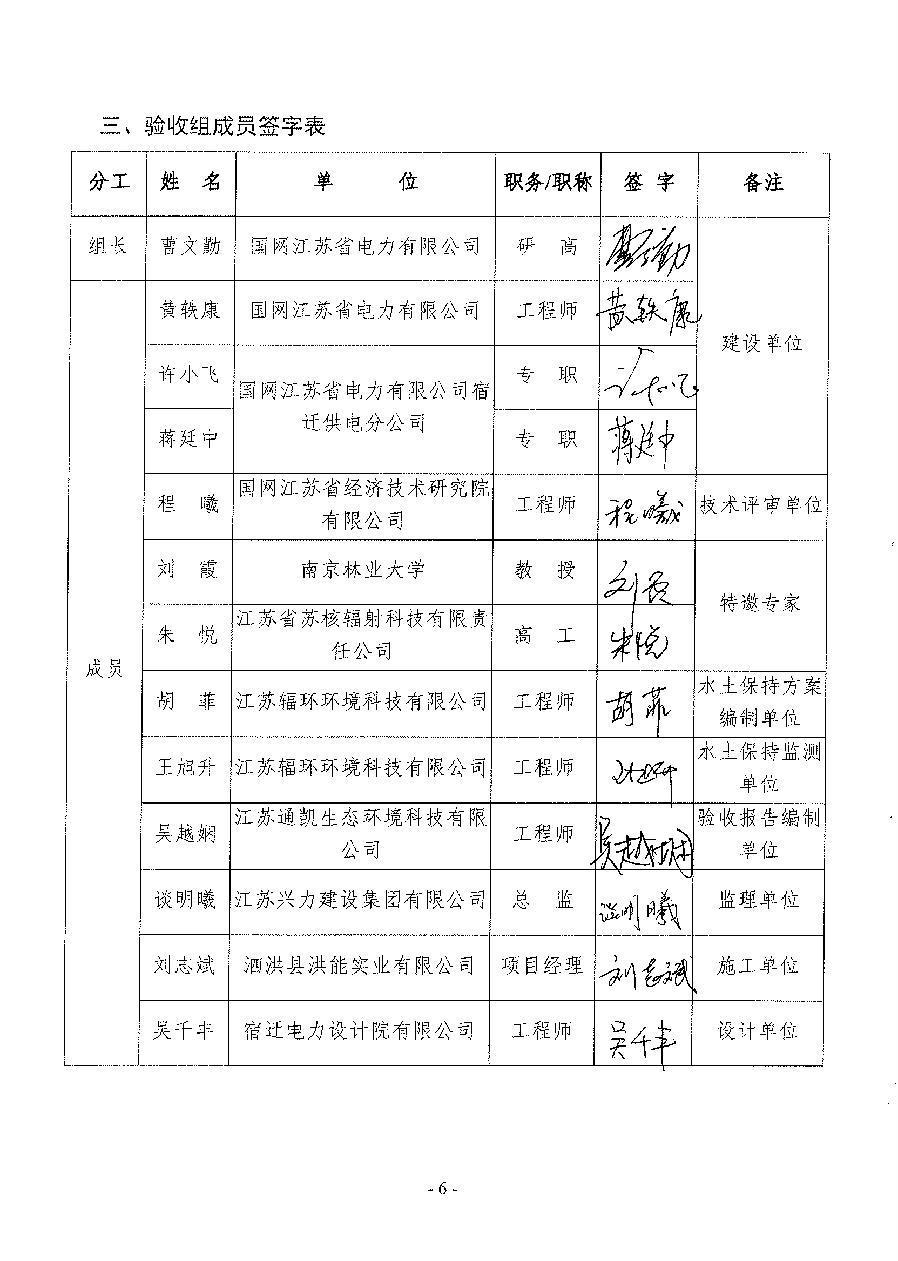 三、验收组成员签字表
分工 姓 名 单 位 职务/职称 签 字 备注
组长 曹文勤 国网江苏省电力有限公司 研 高 曹文勤 建设单位
成员 黄轶康 国网江苏省电力有限公司 工程师 黄轶康
许小飞 国网江苏省电力有限公司宿
迁供电分公司 专 职 许小飞
蒋廷中 专 职 蒋廷中
程 曦 国网江苏省经济技术研究院
有限公司 工程师 程曦 技术评审单位
刘 霞 南京林业大学 教 授 刘霞 特邀专家
朱 悦 江苏省苏核辐射科技有限责
任公司 高 工 朱悦
胡 菲 江苏辐环环境科技有限公司 工程师 胡菲 水土保持方案
编制单位
王旭升 江苏辐环环境科技有限公司 工程师 水土保持监测
单位
吴越娴 江苏通凯生态环境科技有限
公司 工程师 吴越娴 验收报告编制
单位
谈明曦 江苏兴力建设集团有限公司 总 监 谈明曦 监理单位
刘志斌 泗洪县洪能实业有限公司 项目经理 刘志斌 施工单位
吴千丰 宿迁电力设计院有限公司 工程师 吴千丰 设计单位
- 6 -